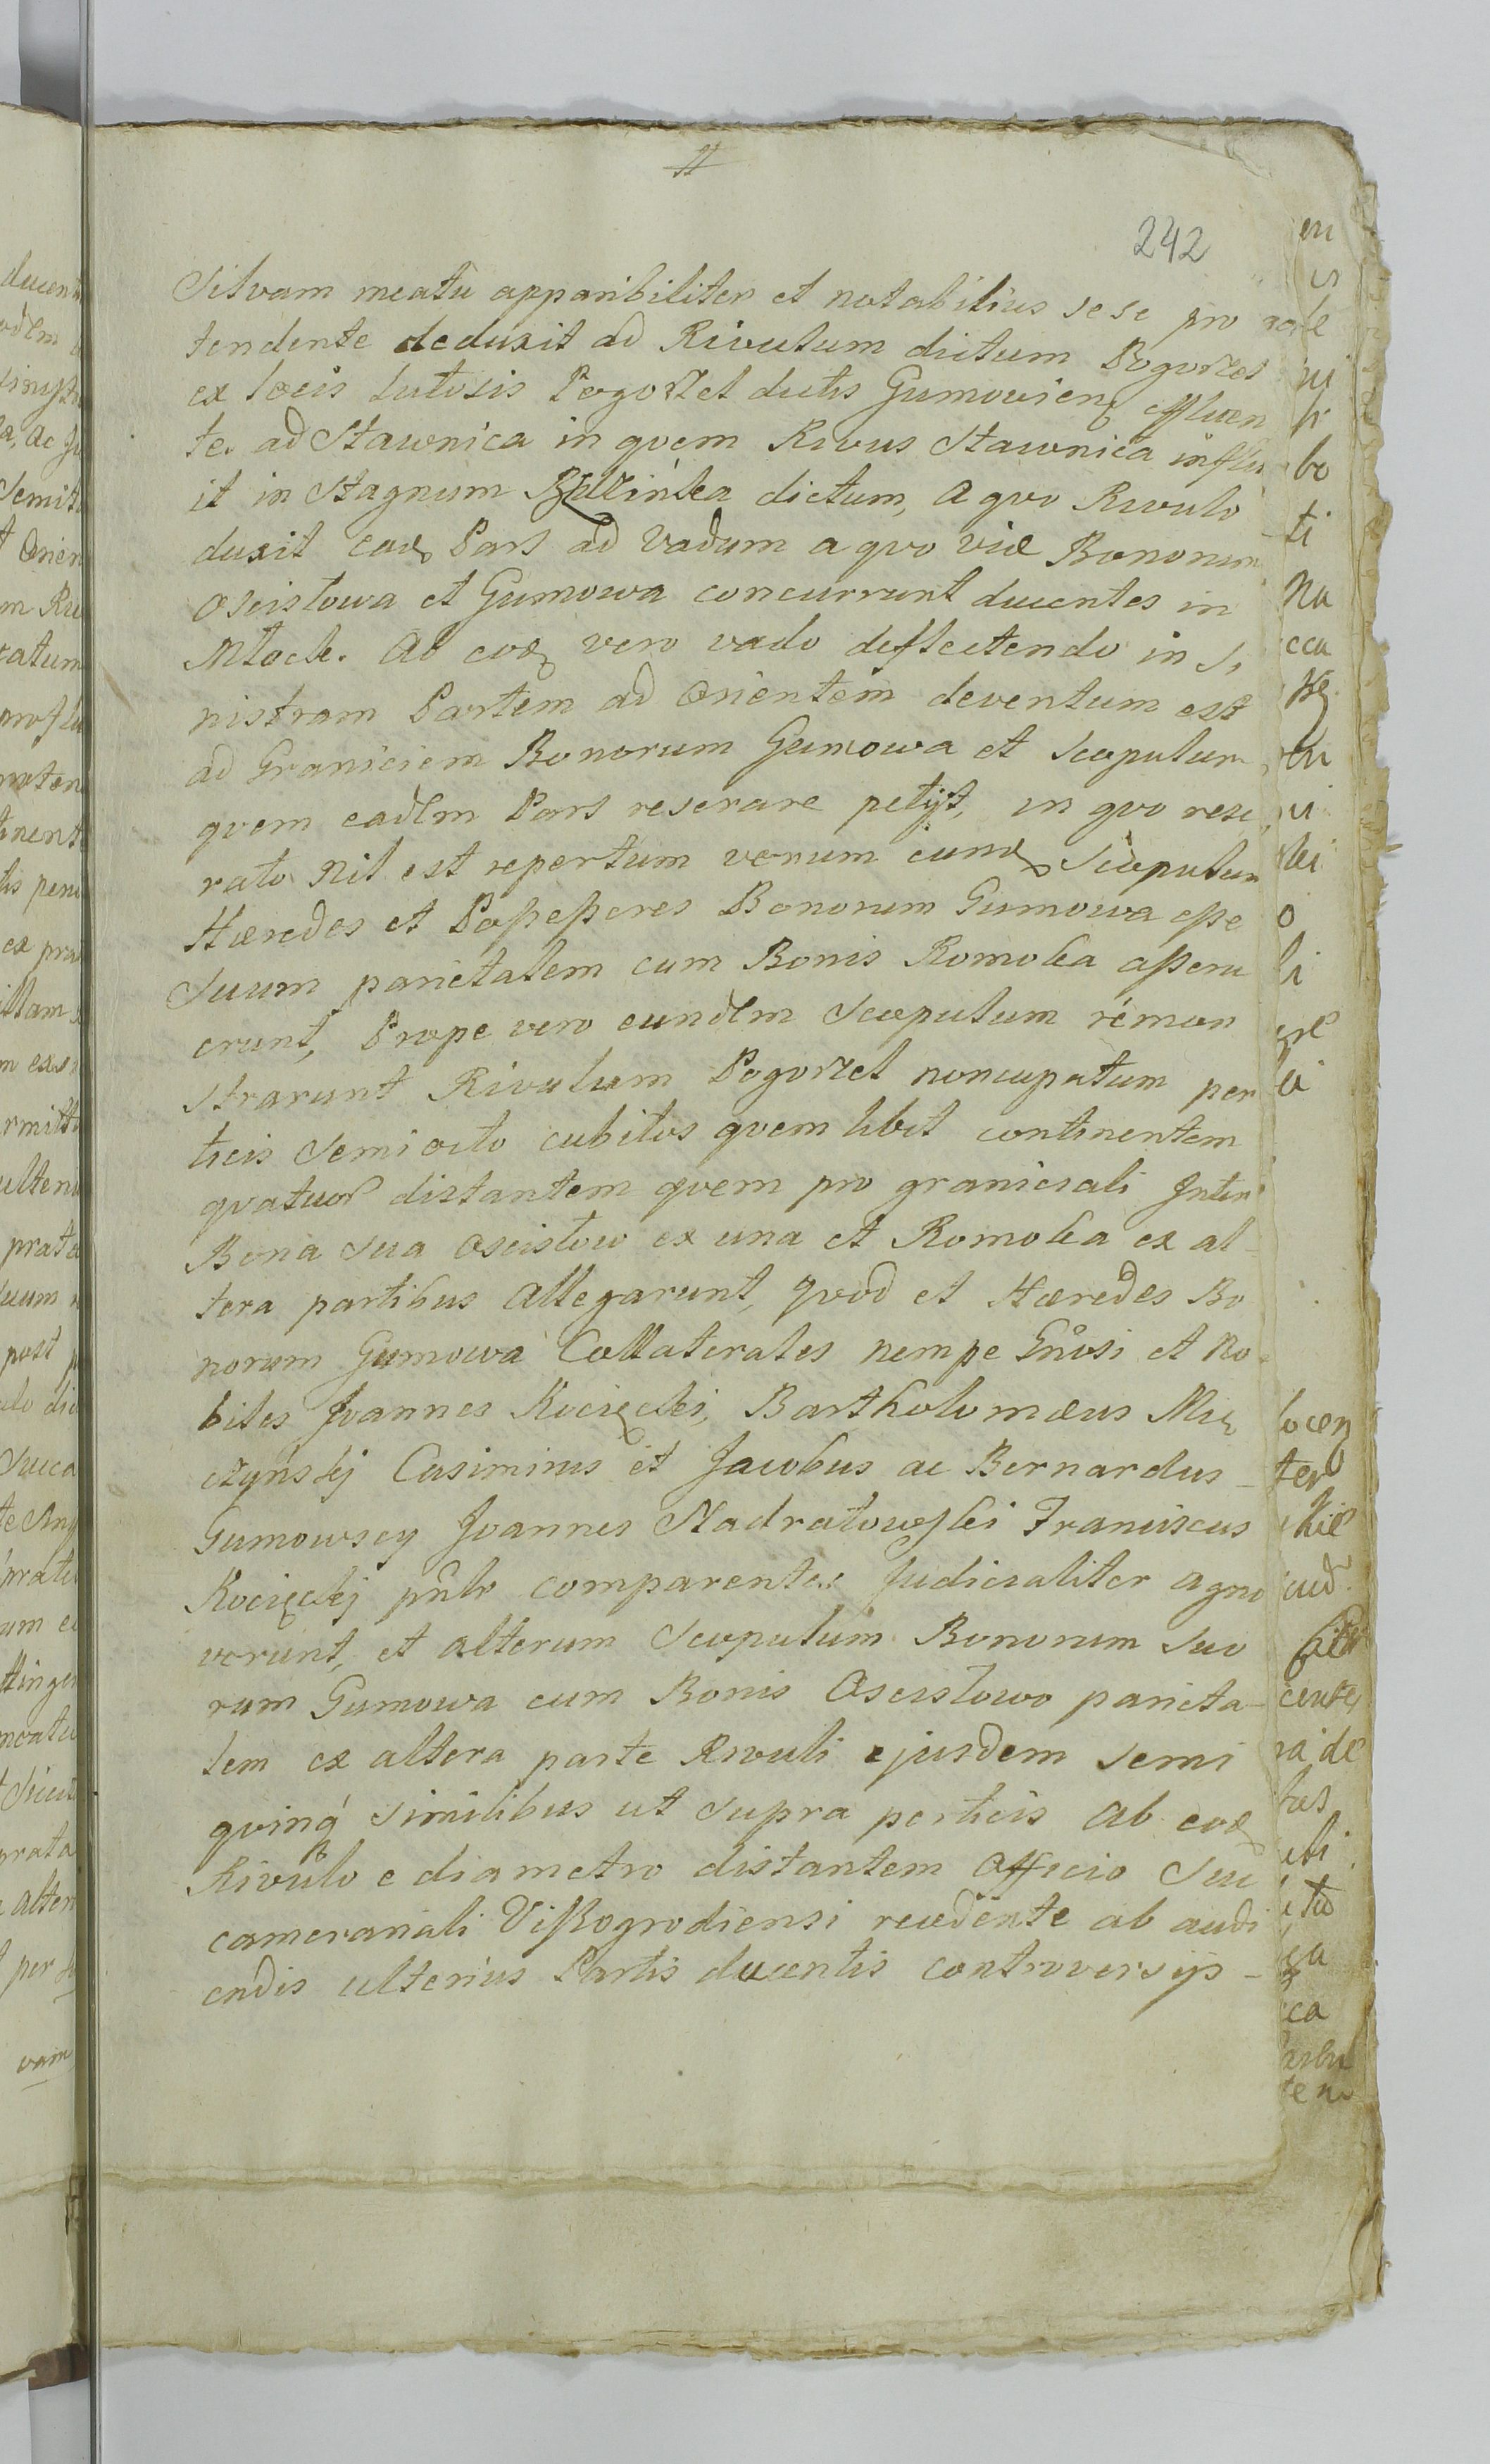 11
242
Silvam meatu apparibiliter et notabilius sese pro
tendente deduxit ad Rivulum dictum Pogorzel
ex locis lutosis Pogorzel dictis Gumovien effluen
te. ad Stawnica in qvem Rivus Stawnica influ
it in Stagnum dictum, a qvo Rivulo
duxit ead Pars ad Vadum a qvo viæ Bonorum
Oscisłowa et Gumowa concurrunt ducentes in
Młock. Ab eod vero vado deflectendo in Si
nistram Partem ad Orientem deventum est
ad Graniciem Bonorum Gumowa et Scopulum
qvem eadem Pars reserare petijt, in qvo rese
rato nil est repertum verum eund Scopulum
Hæredes et Possessores Bonorum Gumowa esse
Suum parietalem cum Bonis Romoka asseru
erunt, Prope vero eundem Scopulum remon
strarunt Rivulum Pogorzel noncupatum per
ticis Semi octo cubitos qvem libet continentem
qvatuor distantem qvem pro graniciali Inter
Bona sua Oscisłow ex una et Romoka ex al
tera partibus allegarunt, qvod et Hæredes Bo
norum Gumowa Collaterales nempe Gnosi et No
biles Joannes Kocięcki, Bartholomæus Mię
czyńskj Casimirus et Jacobus ac Bernardus
Gumowscy Joannes Nadratowski Franciscus
Kocięckj pnlr comparentes Judicialiter agno
verunt, et alterum Scopulum Bonorum suo
rum Gumowa cum Bonis Oscisłowo parieta
lem ex altera parte Rivuli ejusdem semi
qvinq similibus ut supra perticis ab eod
Rivulo e diametro distantem Officio Suc
camerariali Vissogrodiensi recedente ab audi
endis ulterius Partis ducentis controversijs